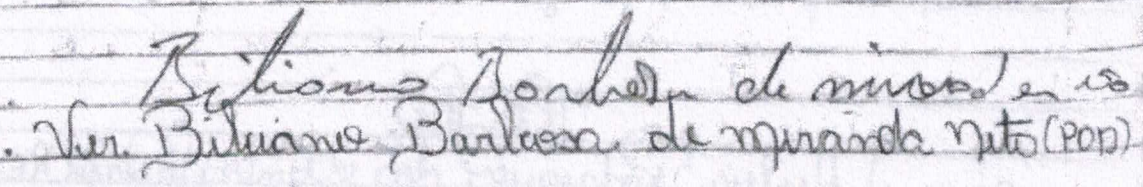 Bituano Barbosa de Miranda
. Ver. Bituano Barbosa de Miranda Neto (POD)